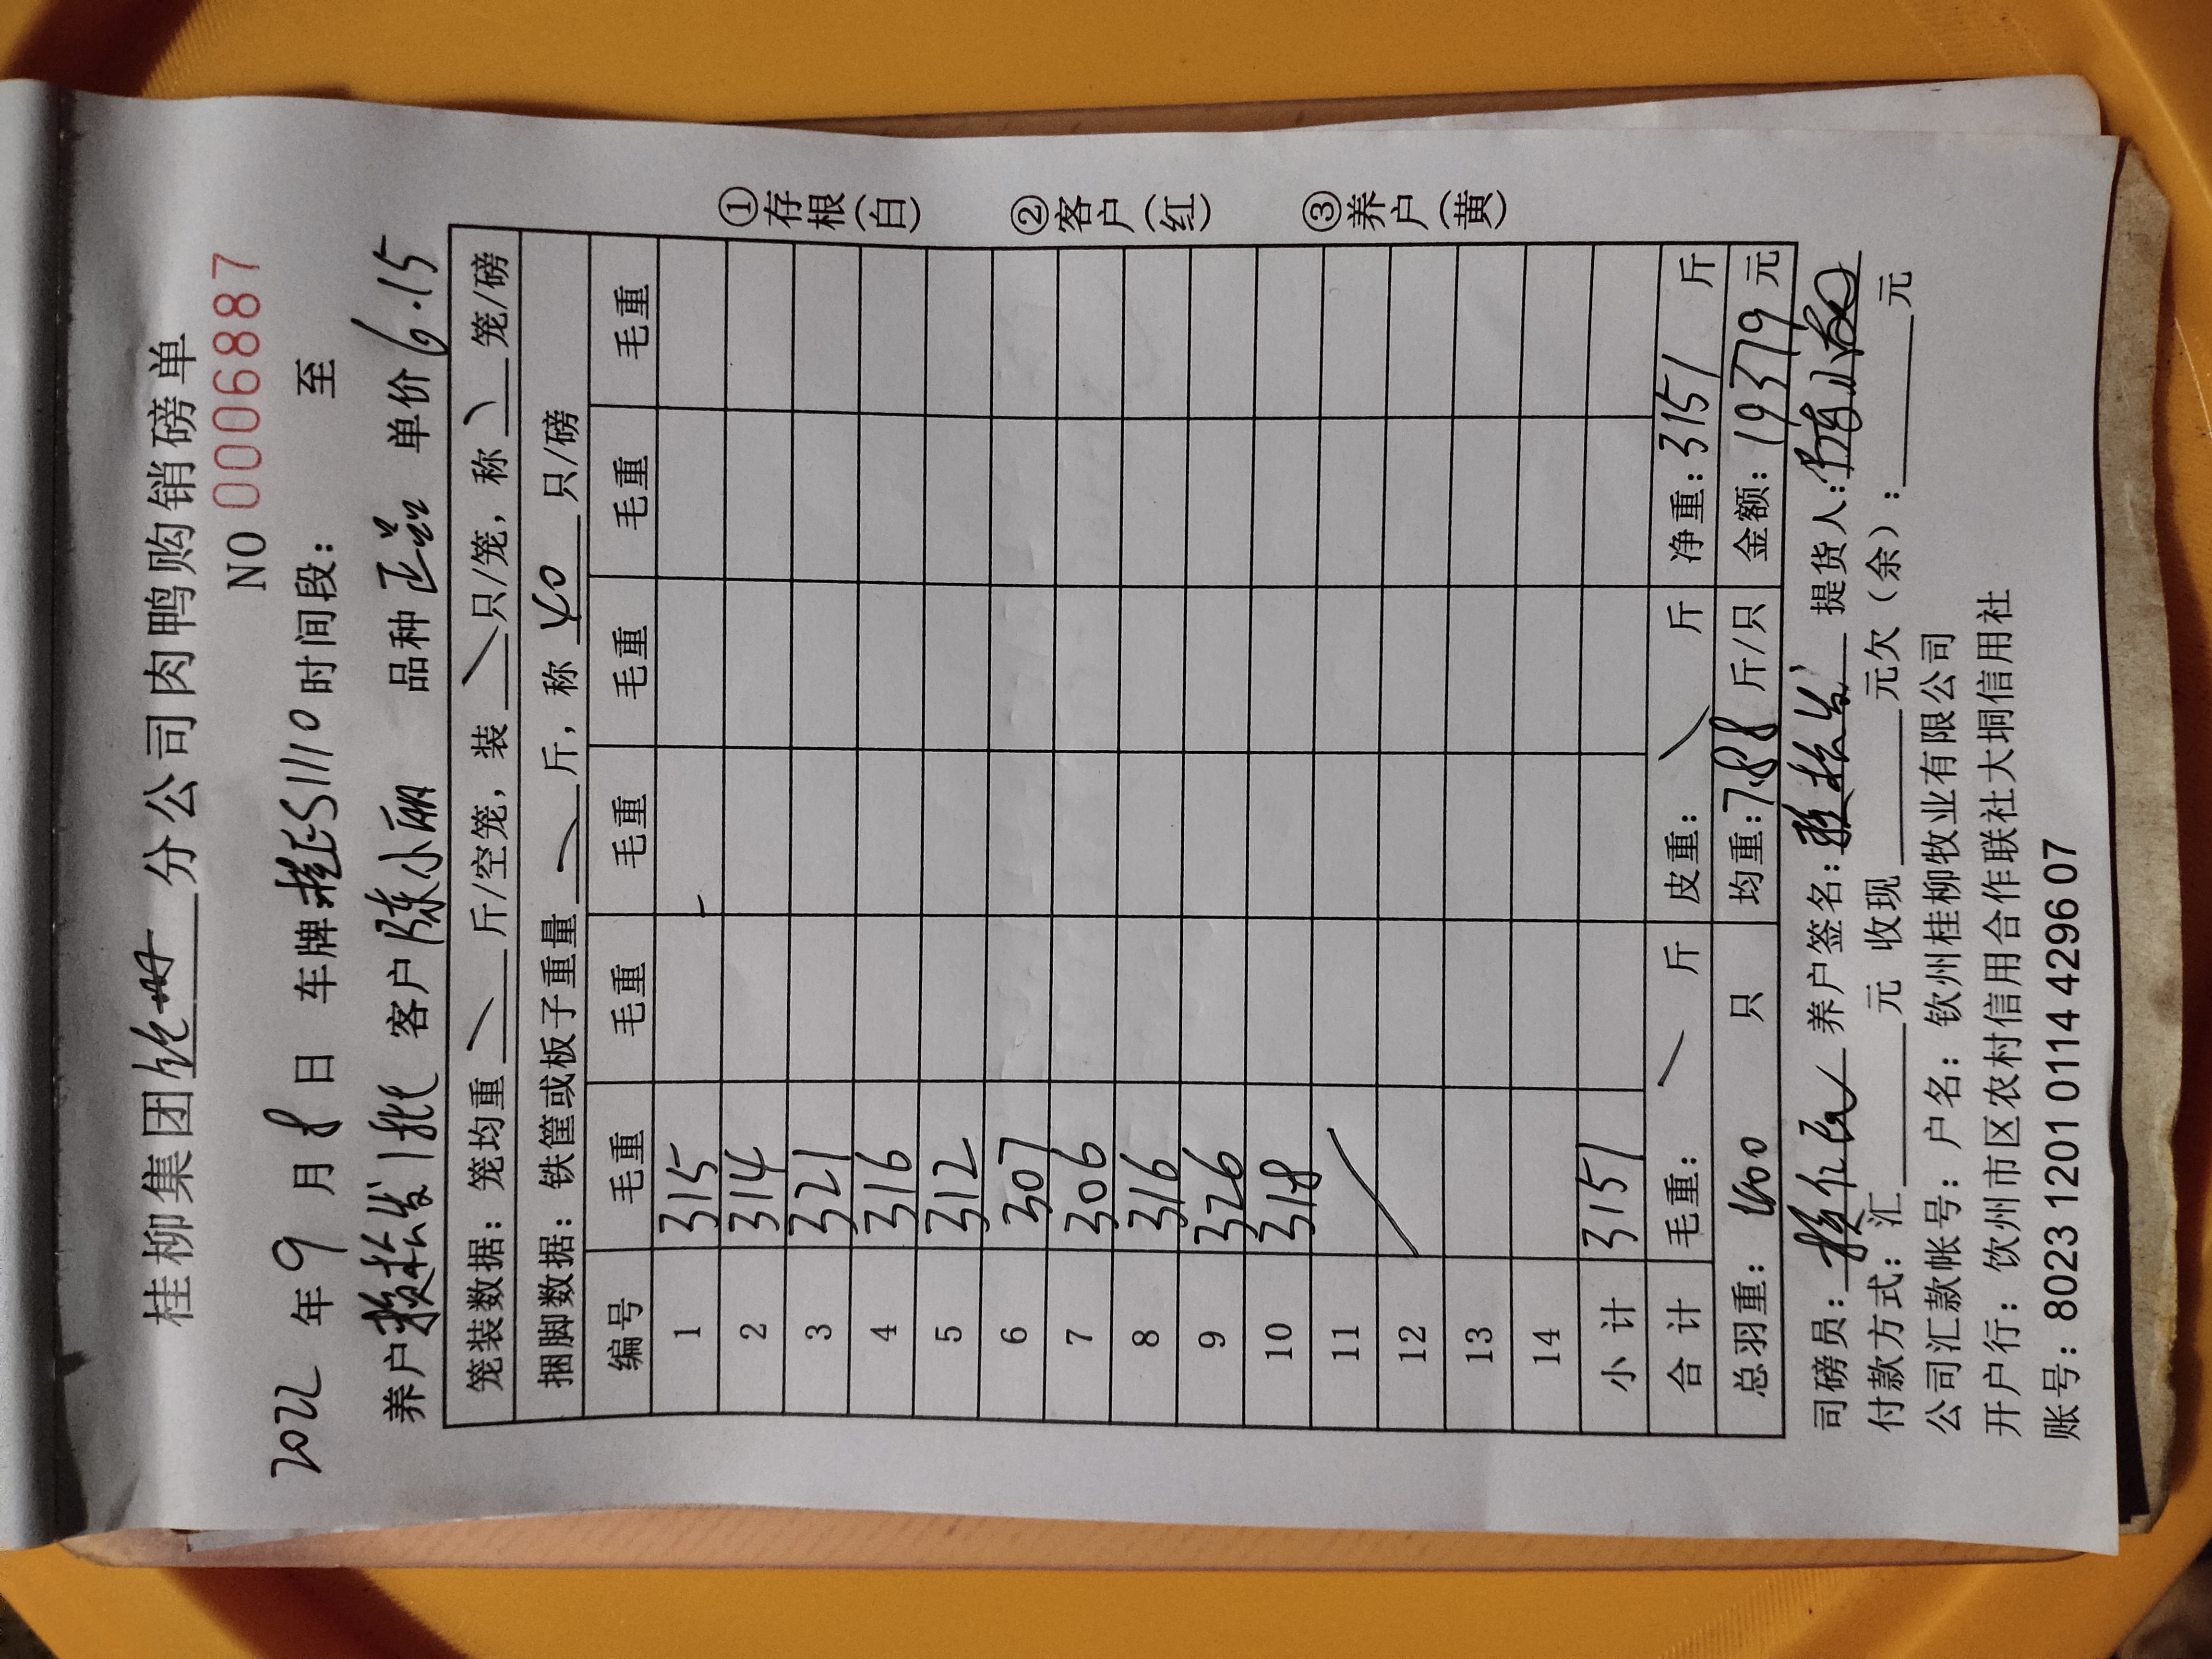 桂柳集团 分公司肉鸭购销磅单
NO 0006887
2022 年 9 月 8 日 车牌桂E51110 时间段： 至
养户赖松发1批 客户陈小丽 品种正品 单价6.15
笼装数据：笼均重 斤/空笼，装 只/笼，称 笼/磅
捆脚数据：铁筐或板子重量 斤，称 40 只/磅
编号 毛重 毛重 毛重 毛重 毛重 毛重
1 315
2 314
3 321
4 316
5 312
6 307
7 306
8 316
9 326
10 318
11
12
13
14
小计 3151
合计 毛重： 斤 皮重： 斤 净重：3151 斤
总羽重：400 只 均重：7.88 斤/只 金额：19379 元
司磅员： 养户签名：赖松发 提货人：
付款方式：汇 元 收现 元欠（余）： 元
公司汇款帐号：户名：钦州桂柳牧业有限公司
开户行：钦州市区农村信用合作联社大垌信用社
账号：8023 1201 0114 4296 07
①存根（白） ②客户（红） ③养户（黄）